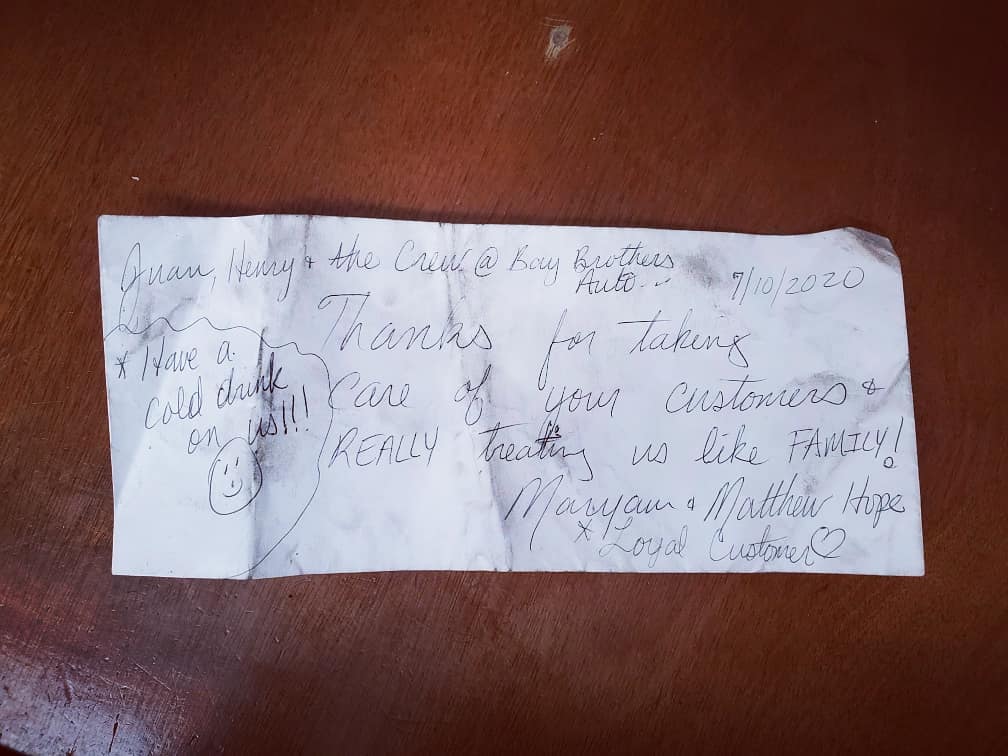 Juan, Henry & the Crew @ Bay Brothers
Auto...
7/10/2020
Thanks for taking
Care of your customers &
REALLY treating us like FAMILY!
Maryam & Matthew Hope
* Loyal Customer♡
* Have a
cold drink
on us!!!